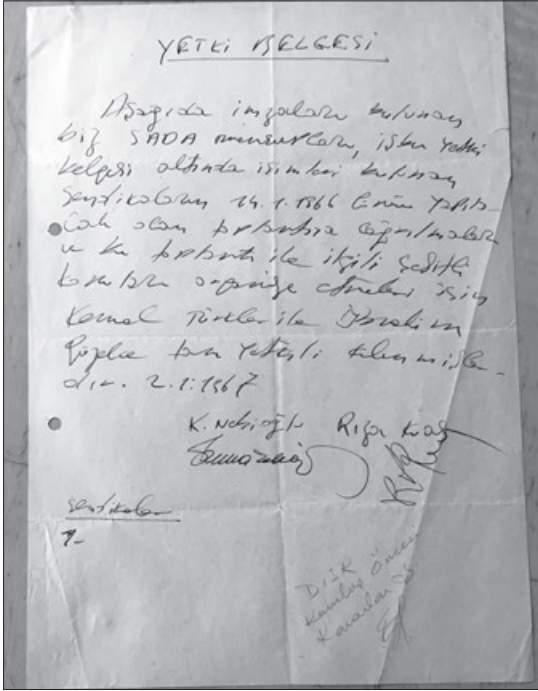 YETKİ BELGESİ
Aşağıda imzaları bulunan
biz SADA mensupları, işbu yetki
belgesi altında isimleri bulunan
Sendikaların 14.1.1966 Günü yapıla-
cak olan toplantıya çağrılmaları
ve bu toplantı ile ilgili çeşitli
konuları organize etmeleri için
Kemal Türkler ile İbrahim
Güzelce tam yetkili kılınmışlar-
dır. 2.1.1967
K. Nebioğlu Rıza Kuas
Sendikalar
1-
DİSK
Kuruluş Öncesi
Kararlar